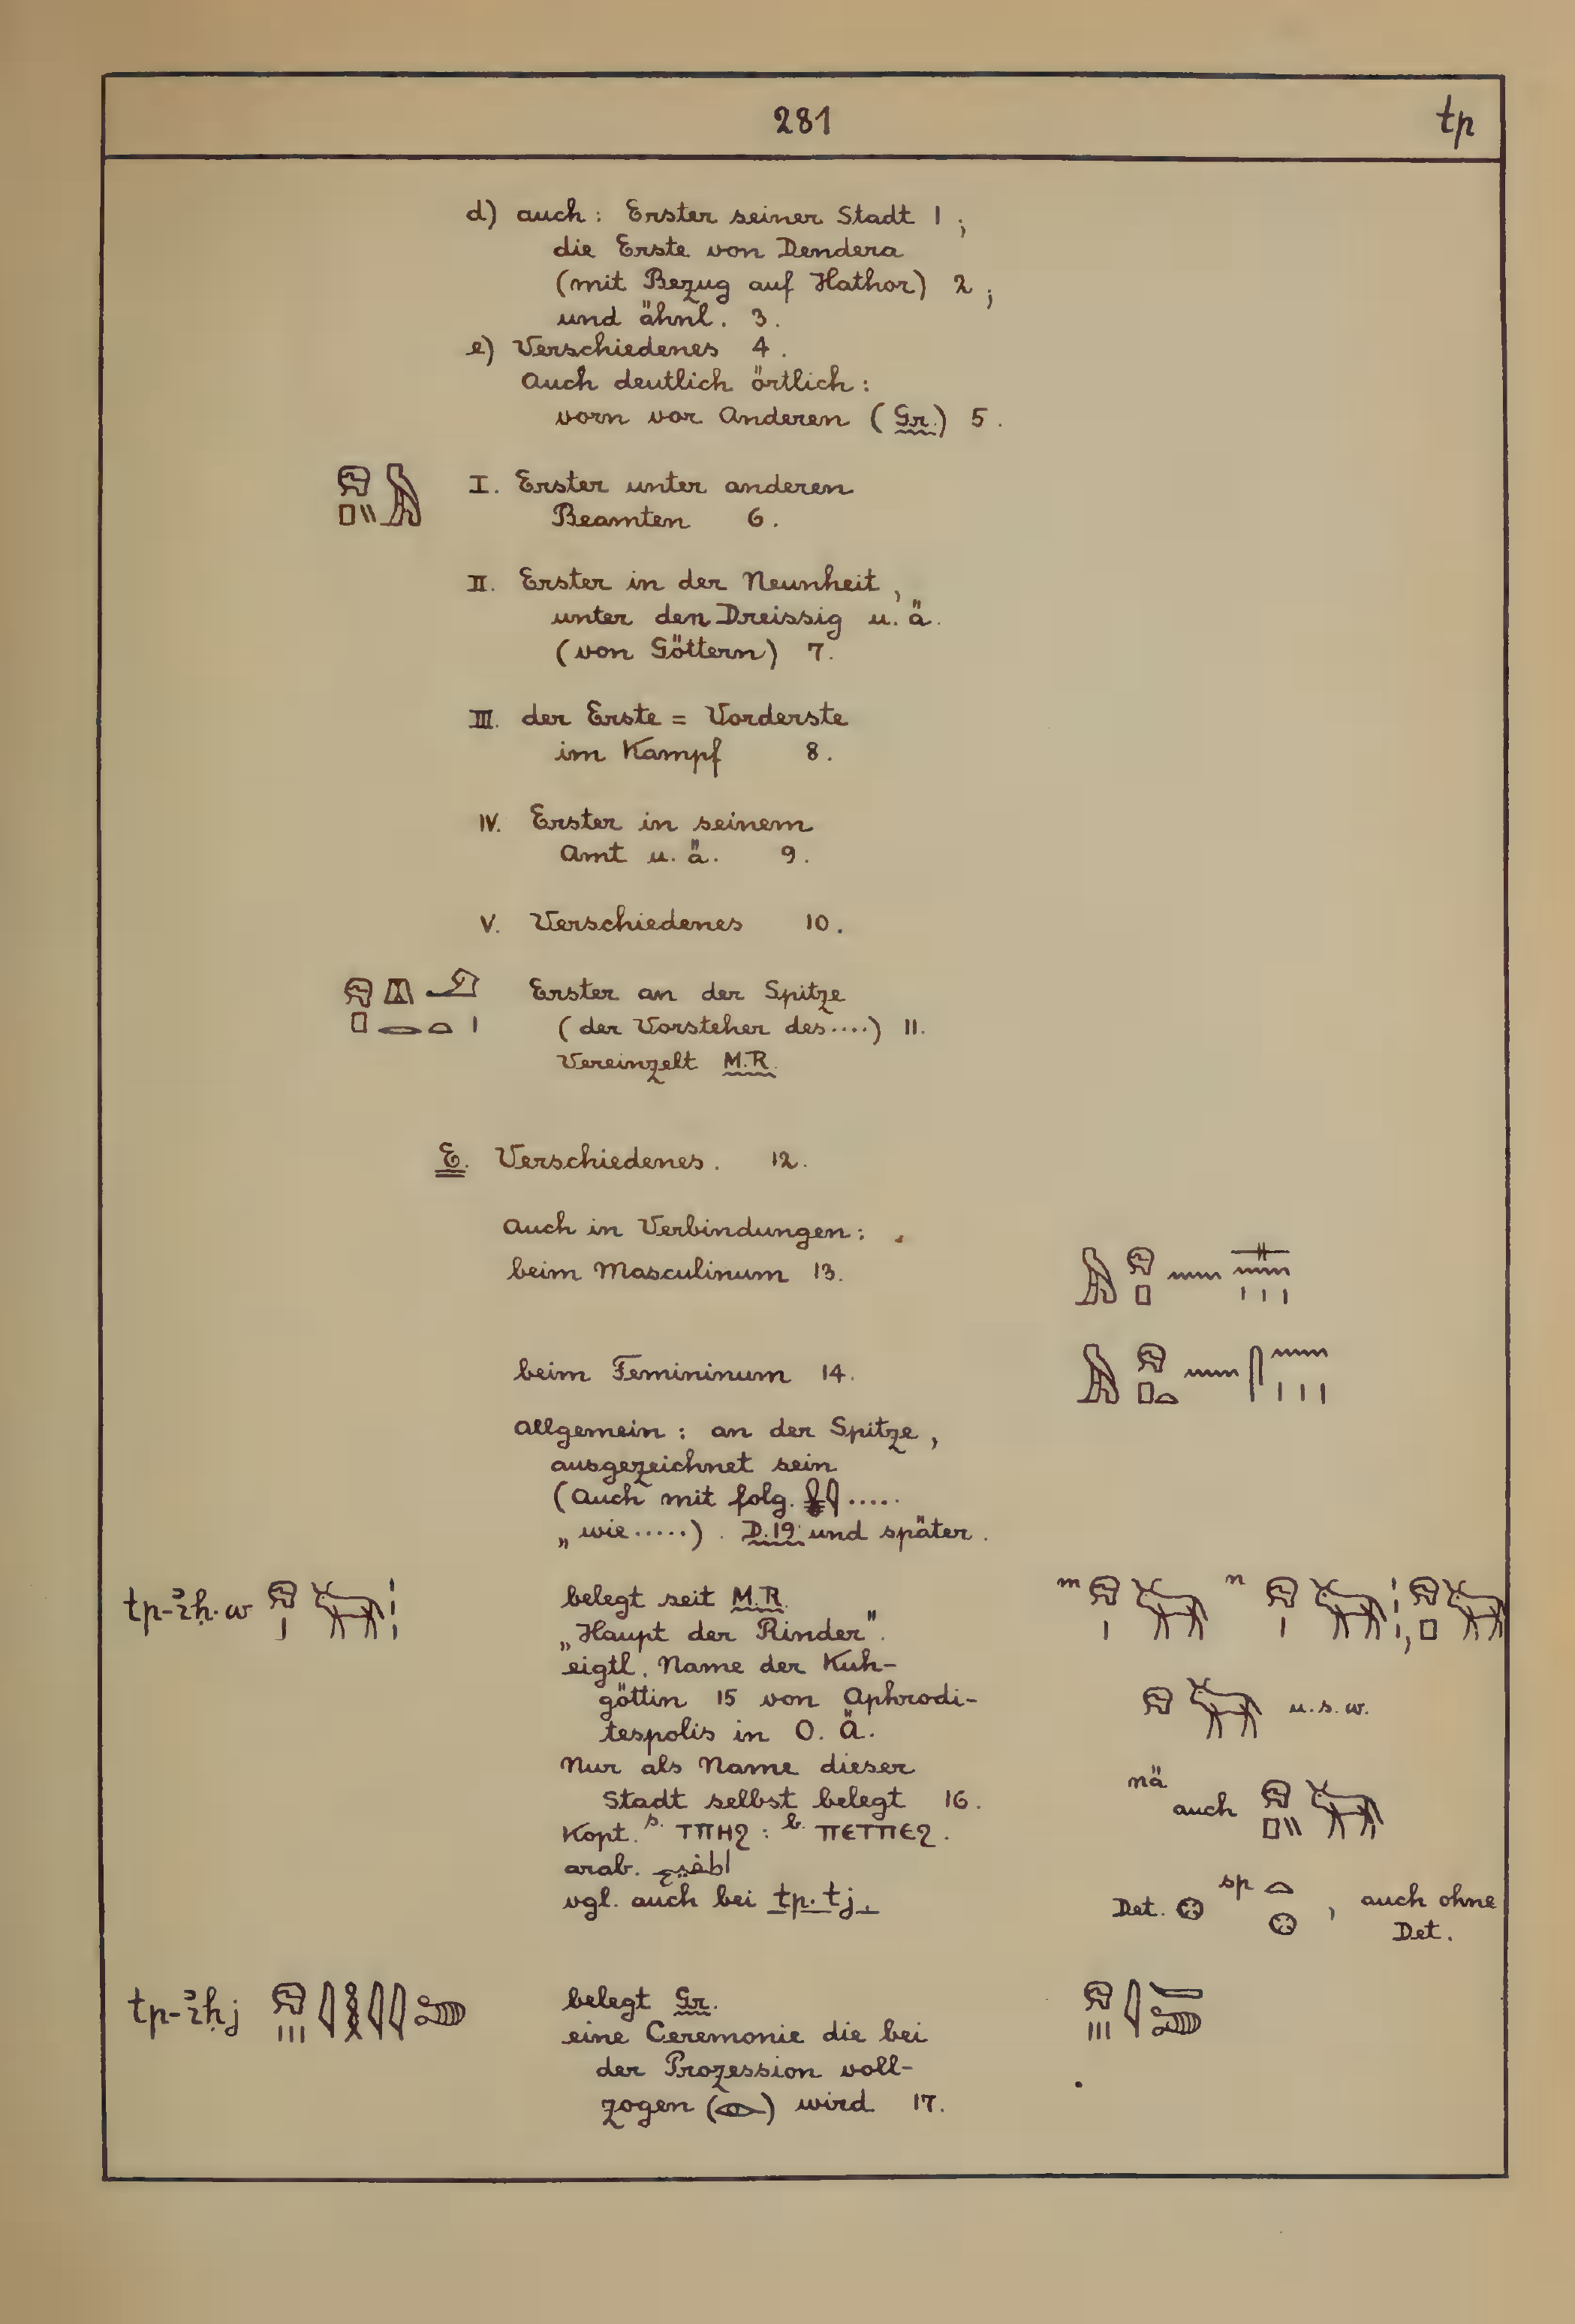 281
tp
d) auch : Erster seiner Stadt 1 ;
die Erste von Dendera
(mit Bezug auf Hathor) 2 ;
und ähnl. 3.
e) Verschiedenes 4.
Auch deutlich örtlich :
vorn vor Anderen (Gr.) 5.
I. Erster unter anderen
Beamten 6.
II. Erster in der Neunheit,
unter den Dreissig u. ä.
(von Göttern) 7.
III. der Erste = Vorderste
im Kampf 8.
IV. Erster in seinem
Amt u. ä. 9.
V. Verschiedenes 10.
Erster an der Spitze
(der Vorsteher des....) 11.
Vereinzelt M.R.
E. Verschiedenes. 12.
Auch in Verbindungen :
beim Masculinum 13.
beim Femininum 14.
Allgemein : an der Spitze,
ausgezeichnet sein
(Auch mit folg. .....
„wie.....). D.19. und später.
tp-ꞽḥ.w
belegt seit M.R.
„Haupt der Rinder".
eigtl. Name der Kuh-
göttin 15 von Aphrodi-
tespolis in O. Ä.
Nur als Name dieser
Stadt selbst belegt 16.
Kopt. s. ⲧⲡⲏϩ : b. ⲡⲉⲧⲡⲉϩ.
arab. اطفيح
vgl. auch bei tp.tj.
m n
u.s.w.
nä
auch
Det. sp , auch ohne
Det.
tp-ꞽḥj
belegt Gr.
eine Ceremonie die bei
der Prozession voll-
zogen ( ) wird 17.